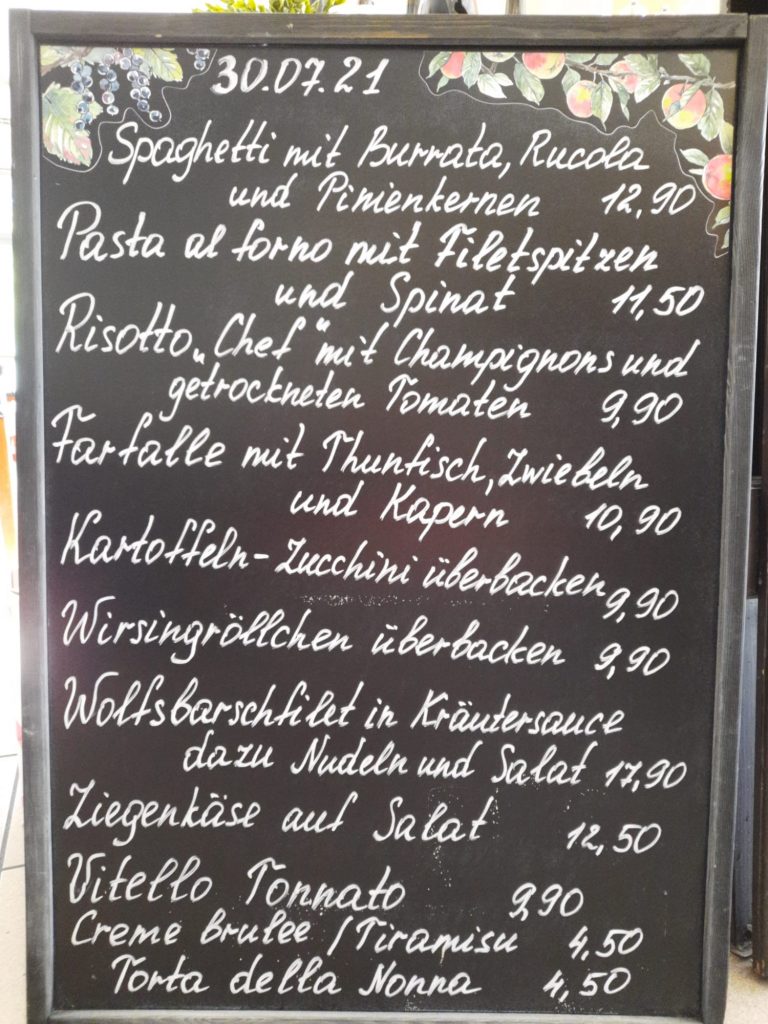 30.07.21
Spaghetti mit Burrata, Rucola
und Pinienkernen 12,90
Pasta al forno mit Filetspitzen
und Spinat 11,50
Risotto „Chef“ mit Champignons und
getrockneten Tomaten 9,90
Farfalle mit Thunfisch, Zwiebeln
und Kapern 10,90
Kartoffeln-Zucchini überbacken 9,90
Wirsingröllchen überbacken 9,90
Wolfsbarschfilet in Kräutersauce
dazu Nudeln und Salat 17,90
Ziegenkäse auf Salat 12,50
Vitello Tonnato 9,90
Creme Brulee / Tiramisu 4,50
Torta della Nonna 4,50